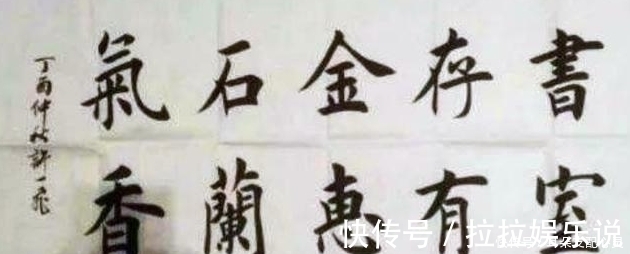 書存金石氣
室有惠蘭香
丁酉仲秋許一飛
快传号 / 拉拉娱乐说